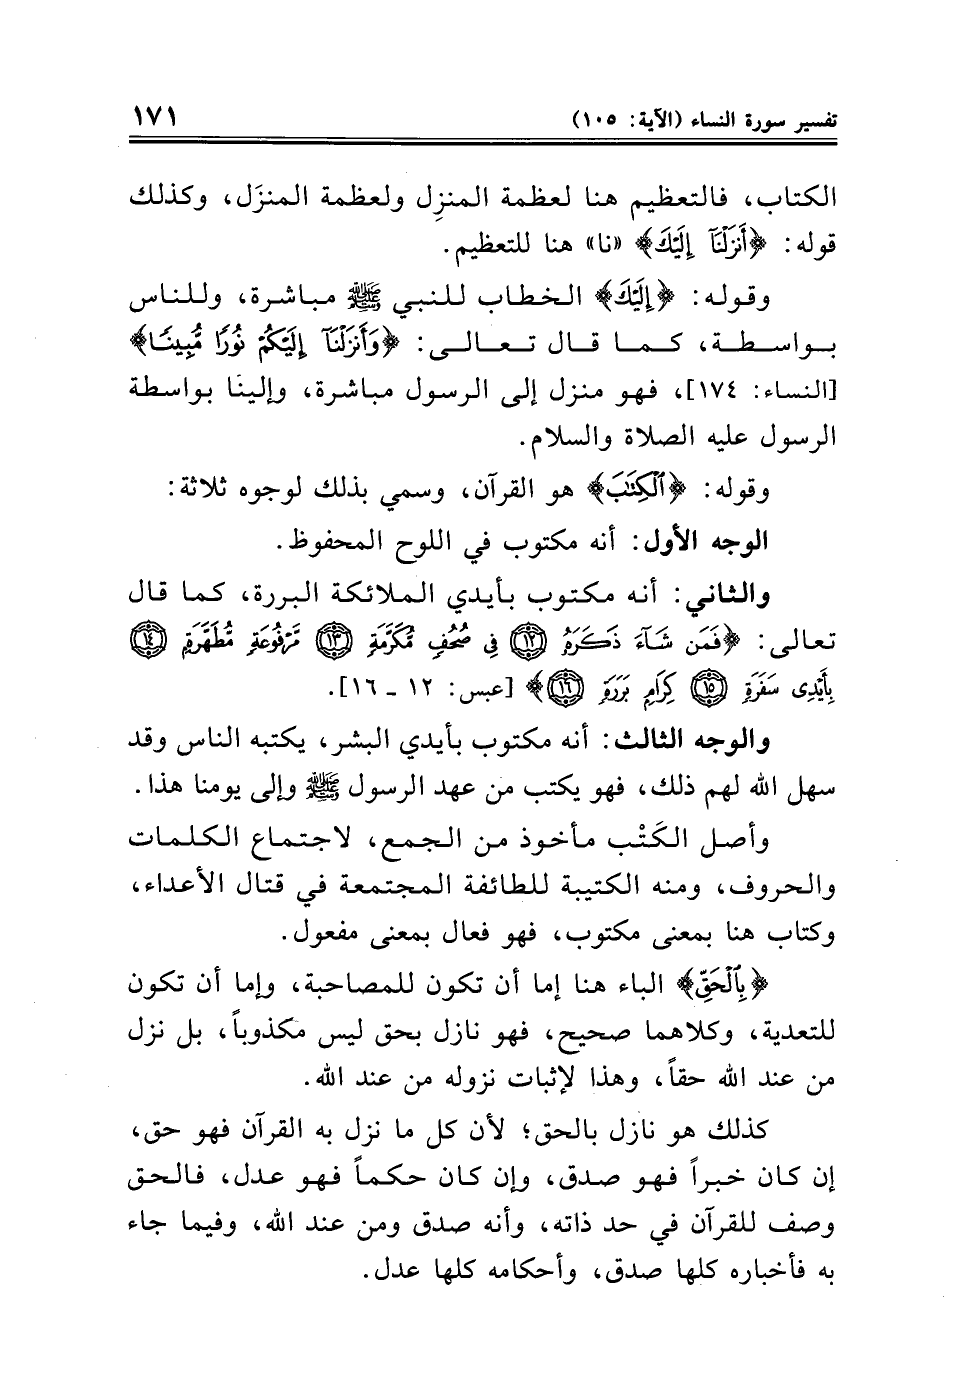 تفسير سورة النساء (الآية: ١٠٥) ١٧١
الكتاب، فالتعظيم هنا لعظمة المنزِل ولعظمة المنزَل، وكذلك
قوله: ﴿أَنزَلْنَآ إِلَيْكَ﴾ «نا» هنا للتعظيم.
وقوله: ﴿إِلَيْكَ﴾ الخطاب للنبي ﷺ مباشرة، وللناس
بواسطة، كما قال تعالى: ﴿وَأَنزَلْنَآ إِلَيْكُمْ نُورًا مُّبِينًا﴾
[النساء: ١٧٤]، فهو منزل إلى الرسول مباشرة، وإلينا بواسطة
الرسول عليه الصلاة والسلام.
وقوله: ﴿ٱلْكِتَٰبَ﴾ هو القرآن، وسمي بذلك لوجوه ثلاثة:
الوجه الأول: أنه مكتوب في اللوح المحفوظ.
والثاني: أنه مكتوب بأيدي الملائكة البررة، كما قال
تعالى: ﴿فَمَن شَآءَ ذَكَرَهُۥ ١٢ فِى صُحُفٍ مُّكَرَّمَةٍ ١٣ مَّرْفُوعَةٍ مُّطَهَّرَةٍۭ ١٤
بِأَيْدِى سَفَرَةٍ ١٥ كِرَامٍۭ بَرَرَةٍ ١٦﴾ [عبس: ١٢ - ١٦].
والوجه الثالث: أنه مكتوب بأيدي البشر، يكتبه الناس وقد
سهل الله لهم ذلك، فهو يكتب من عهد الرسول ﷺ وإلى يومنا هذا.
وأصل الكَتْب مأخوذ من الجمع، لاجتماع الكلمات
والحروف، ومنه الكتيبة للطائفة المجتمعة في قتال الأعداء،
وكتاب هنا بمعنى مكتوب، فهو فعال بمعنى مفعول.
﴿بِٱلْحَقِّ﴾ الباء هنا إما أن تكون للمصاحبة، وإما أن تكون
للتعدية، وكلاهما صحيح، فهو نازل بحق ليس مكذوباً، بل نزل
من عند الله حقاً، وهذا لإثبات نزوله من عند الله.
كذلك هو نازل بالحق؛ لأن كل ما نزل به القرآن فهو حق،
إن كان خبراً فهو صدق، وإن كان حكماً فهو عدل، فالحق
وصف للقرآن في حد ذاته، وأنه صدق ومن عند الله، وفيما جاء
به فأخباره كلها صدق، وأحكامه كلها عدل.